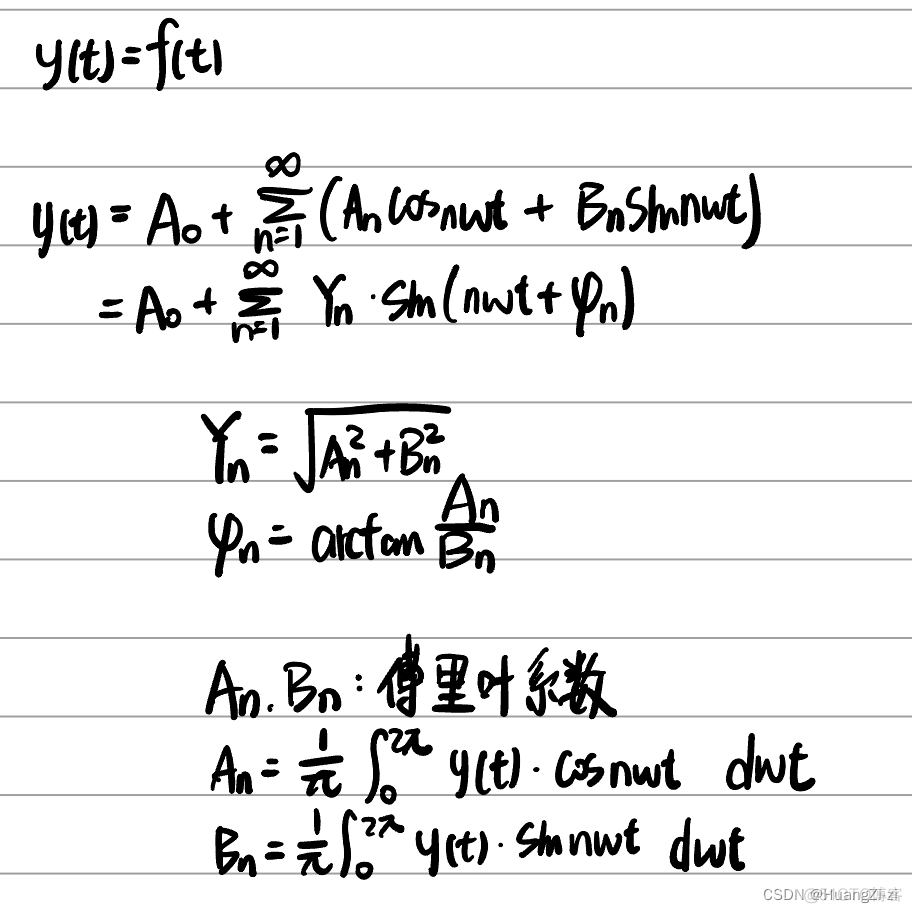 y(t)=f(t)
y(t) = A₀ + ∑_{n=1}^{∞} (Aₙ cosnwt + Bₙ sinnwt)
= A₀ + ∑_{n=1}^{∞} Yₙ · sin(nwt + φₙ)
Yₙ = √(Aₙ² + Bₙ²)
φₙ = arctan Aₙ/Bₙ
Aₙ. Bₙ : 傅里叶系数
Aₙ = 1/π ∫₀^{2π} y(t) · cosnwt dwt
Bₙ = 1/π ∫₀^{2π} y(t) · sinnwt dwt
CSDN @HuangZi.zi